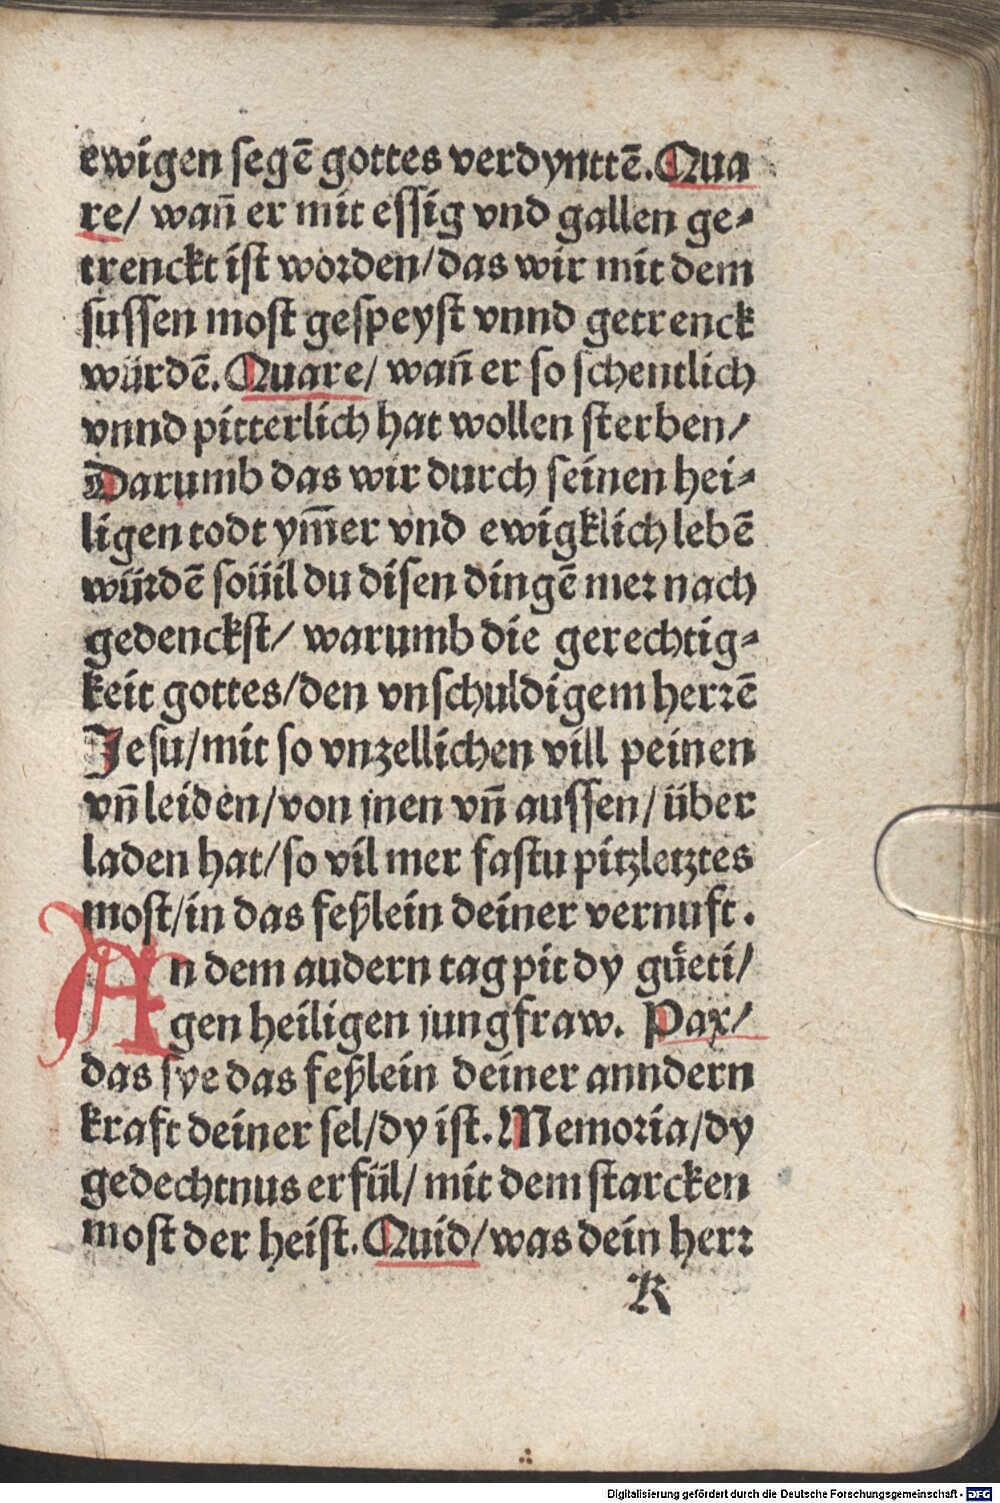 ewigen segē gottes verdynttē. Qua
re/ wañ er mit essig vnd gallen ge⸗
trenckt ist worden/das wir mit dem
süssen most gespeyst vnnd getrenck
würdē. Quare/ wañ er so schentlich
vnnd pitterlich hat wollen sterben/
Darumb das wir durch seinen hei⸗
ligen todt ym̄er vnd ewigklich lebē
würdē souil du disen dingē mer nach
gedenckst/ warumb die gerechtig⸗
keit gottes/den vnschuldigem herrē
Jesu/mit so vnzellichen vill peinen
vñ leiden/von jnen vñ aussen/über
laden hat/so vil mer fastu pitzletztes
most/in das feßlein deiner vernuft.
An dem audern tag pit dy güeti/
gen heiligen jungfraw. Pax/
das sye das feßlein deiner anndern
kraft deiner sel/dy ist. Memoria/dy
gedechtnus erfül/ mit dem starcken
most der heist. Quid/was dein herr
K
Digitalisierung gefördert durch die Deutsche Forschungsgemeinschaft - DFG